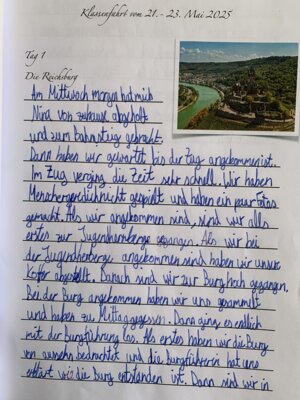 Klassenfahrt vom 21.- 23. Mai 2025
Tag 1
Die Reichsburg
Am Mittwoch morgen hat mich
Nina von zuhause abgeholt
und zum Bahnsteig gebracht.
Dann haben wir gewartet bis der Zug angekommen ist.
Im Zug verging die Zeit sehr schnell. Wir haben
gespielt und haben ein paar Fotos
gemacht. Als wir angekommen sind, sind wir als
erstes zur Jugendherberge gegangen. Als wir bei
der Jugendherberge angekommen sind haben wir unsere
Koffer abgestellt. Danach sind wir zur Burg hoch gegangen.
Bei der Burg angekommen haben wir uns gesammelt
und haben zu Mittag gegessen. Dann ging es endlich
mit der Burgführung los. Als erstes haben wir die Burg
von aussen betrachtet und die Burgführerin hat uns
erklärt wie die Burg entstanden ist. Dann sind wir in